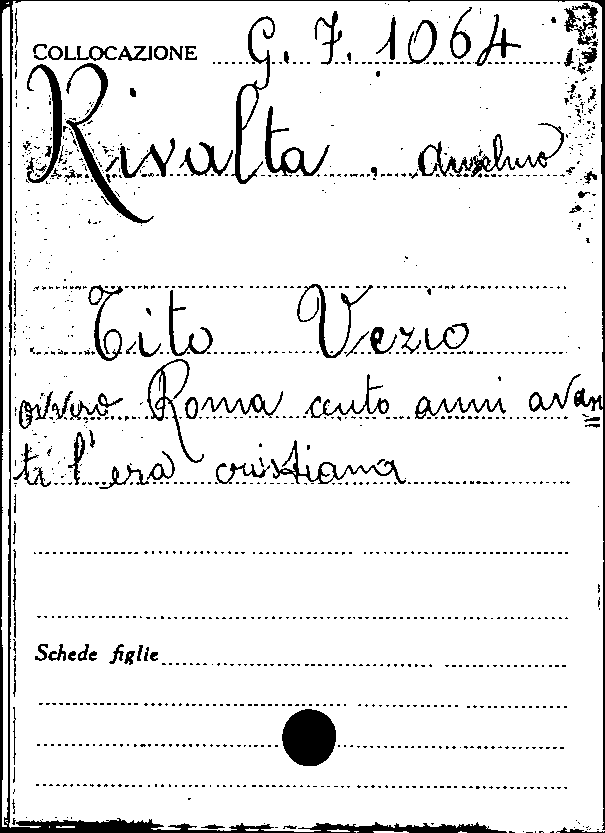 COLLOCAZIONE G. 7. 1064
Rivalta . Anselmo
Tito Vezio
ovvero Roma cento anni avan
ti l'era cristiana
Schede figlie